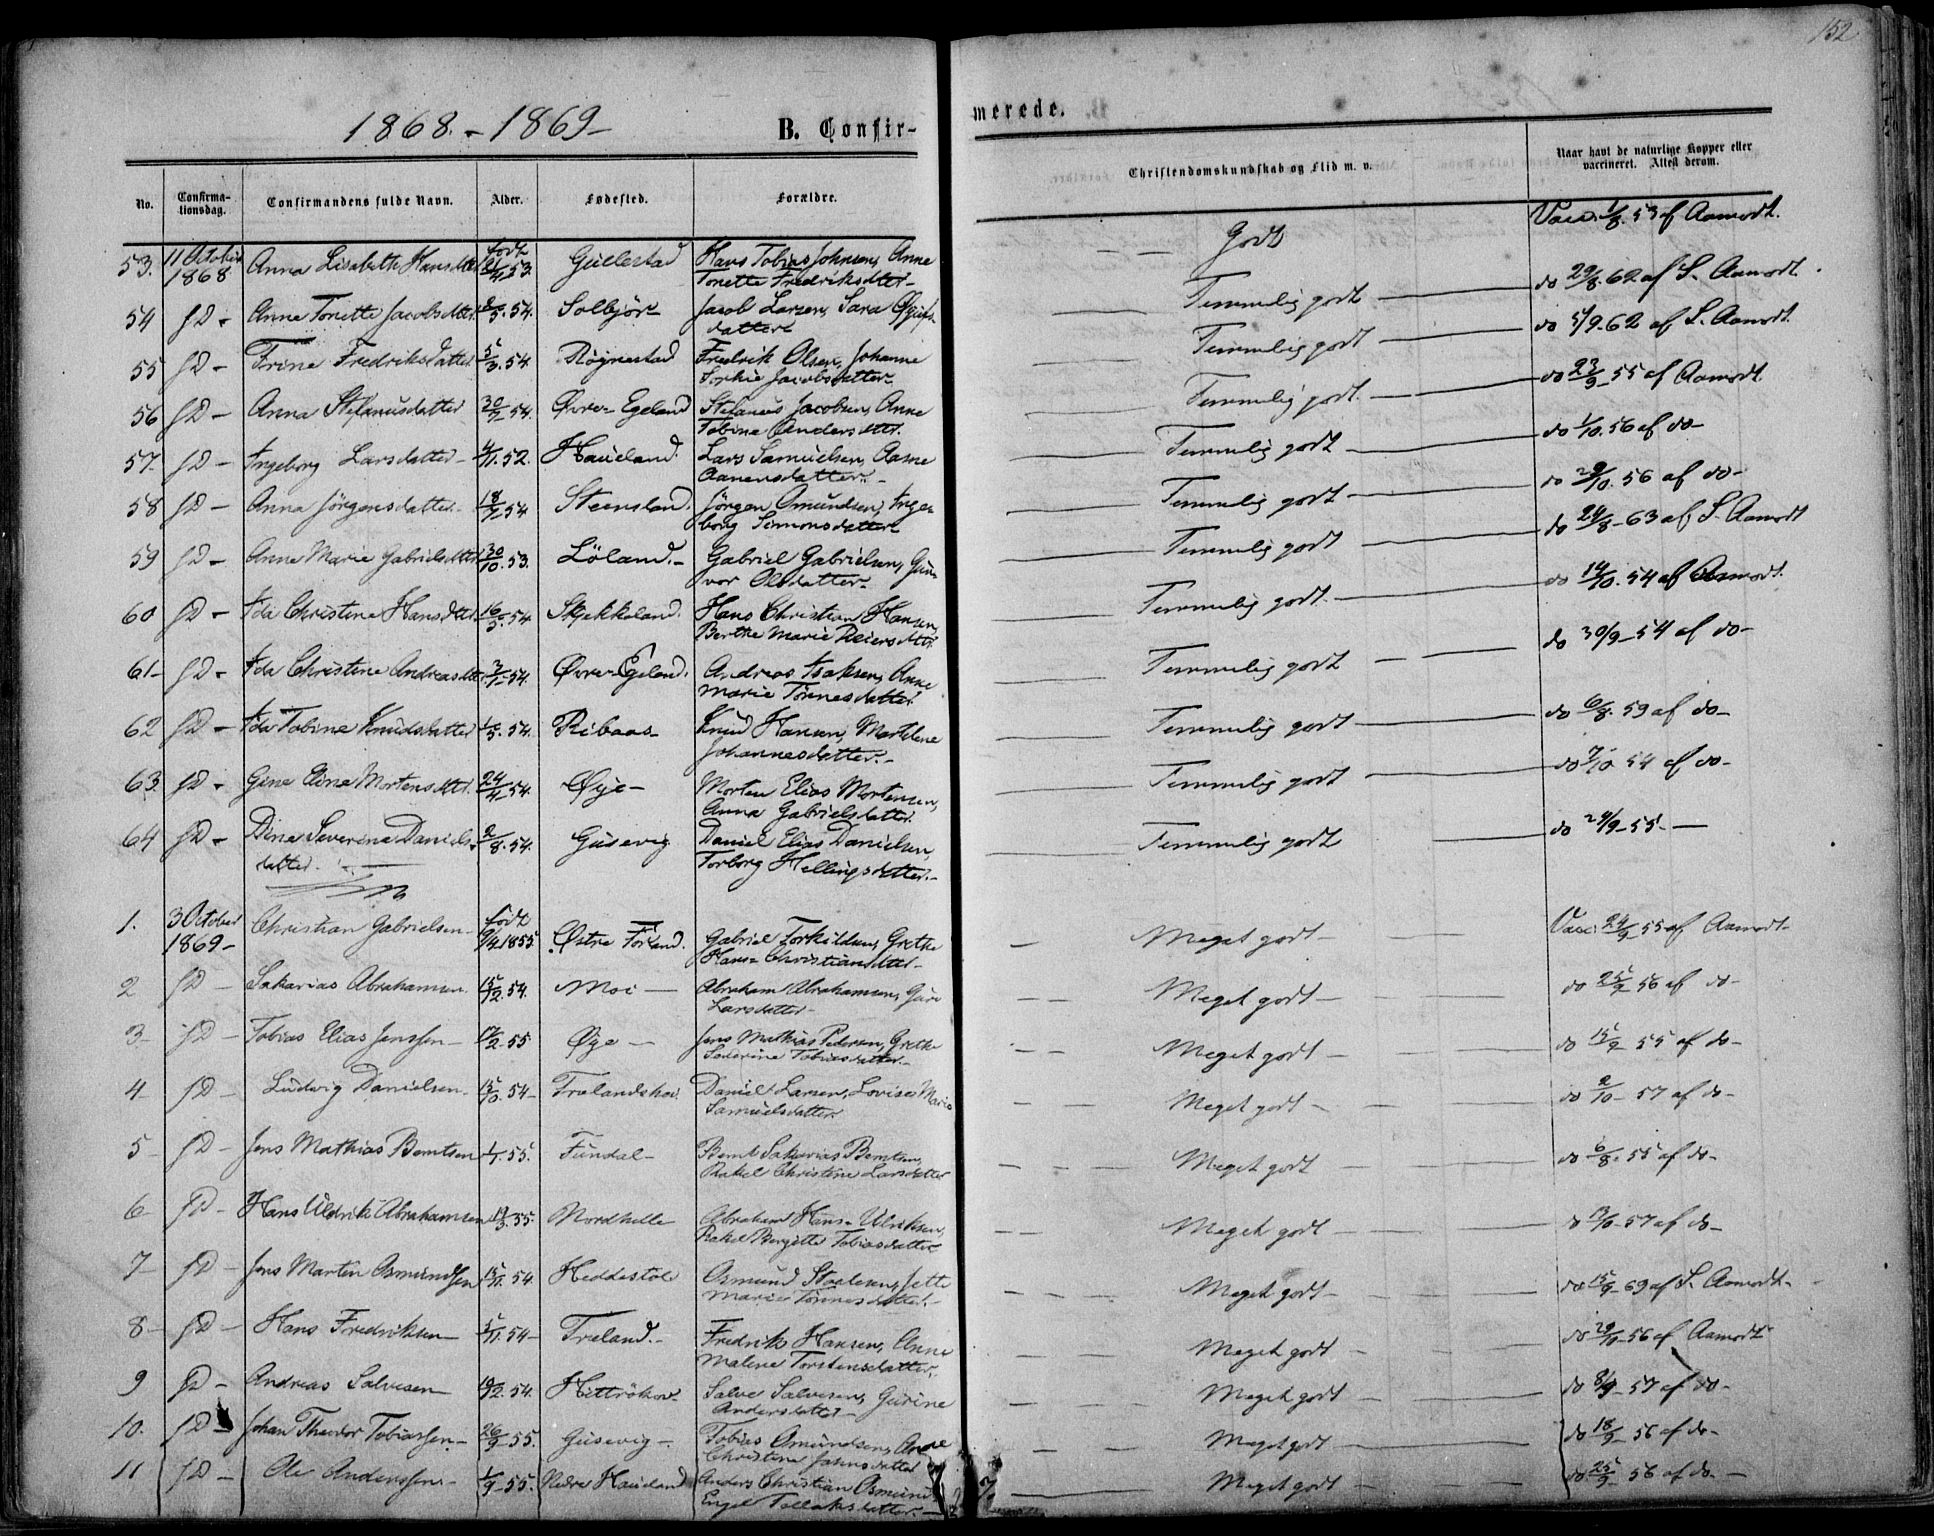 152
1868. - 1869-
B. Confir-
merede.
No.
Confirma-
tionsdag.
Confirmandens fulde Navn.
Alder.
Fødested.
Forældre.
Christendomskundskab og Flid m. v.
Naar havt de naturlige Kopper eller
vaccineret. Attest derom.
53. 11 October født Gullestad Hans Tobias Johnsen, Anne Godt Vacc. 1/8. 53 af Aamodt.
1868 Anna Lisabeth Hansdtter 53. Tonette Fredriksdtter-
54 SD - Anne Tonette Jacobsdtter 54. Solbjør Jacob Larsen, Sara Temmelig godt do 29/8. 62 af S. Aamodt.
datter
55 SD - Trine Fredriksdatter 5/3. 54. Røgnestad Fredrik Olsen, Johanne Temmelig godt do 5/9. 62 af S. Aamodt.
Sophie Jacobsdatter-
56 SD - Anna Stefanusdatter 54. Øvre Egeland Stefanus Jacobsen, Anne Temmelig godt. do 23/9 - 55 af Aamodt
Tobine Andersdtter.
57. SD - Ingeborg Larsdatter - 11. 52. Haueland. Lars Samuelsen, Aasne Temmelig godt do 1/10. 56 af do-
Aanensdatter. -
58 SD - Anna Jörgensdatter - 54 Steensland. Jörgen Omundsen, Inge- Temmelig godt do 29/10. 56 af do-
borg Simonsdatter
59 SD - Anne Marie Gabrielsdtter 30/10. 53. Löland. - Gabriel Gabrielsen, Gun- Temmelig godt do 24/8 - 63 af S. Aamodt
vor Olsdatter-
60 SD - Ida Christine Hansdtter 16/3. 54. Skjekkeland. Hans Christian Hansen, Temmelig godt. do 14/10. 54 af Aamodt.
Berthe Marie Reiersdtter
61 - SD - Ida Christine Andreasdtter 54. Øvre Egeland. Andreas Isaksen, Anne Temmelig godt do 30/9 - 54 af do-
Marie Tönnesdatter
62 SD - Ida Tobine Knudsdatter 1/5. 54. Ribaas- Knud Hansen, Marthene Temmelig godt do 6/8. 59 af do-
Johannesdatter. -
63. SD - Gine Eline Mortensdtter. 54. Øye - Morten Elias Mortensen, Temmelig godt do 7/10 54 af do-
Anna Gabrielsdatter
64 SD - Dine Severine Daniels- 2/8. 54. Gusevig Daniel Elias Danielsen, Temmelig godt do 24/9 - 55. -
datter. Torborg Hellingsdatter. -
1. 3 October født
1869- Christian Gabrielsen- 9/4 1855 Østre Førland. Gabriel Torkildsen, Grethe Meget godt - Vacc: 24/9 55 af Aamodt-
Hans-Christiansdtter-
2 SD - Sakarias Abrahamsen. 15/12. 54. Moi - Abraham Abrahamsen, Guri Meget godt - do 25/9 56 af do-
Larsdatter-
3- SD - Tobias Elias Jenssen - 17/2 - 55 Øye - Jens Mathias Pedersen, Grethe Meget godt - do 15/9 55 af do-
Severine Tobiasdatter. -
4- SD - Ludvig Danielsen- 15/10. 54- Frelandskov. Daniel Larsen, Lovise Marie Meget godt - do 2/10 - 57 af do-
Samuelsdatter
5- SD - Jens Mathias Berntsen 55. Fundal- Bernt Sakarias Berntsen, Meget godt do 6/8. 55 af do-
Rakel Christine Larsdatter
6- SD - Hans Uldrik Abrahamsen 19/3. 55. Nordhelle Abraham Hans- Ulriksen, Meget godt - do 13/10 - 57 af do-
Rakel Bergitte Tobiasdatter
7- SD - Jens Martin Osmundsen 15/11. 54. Heddestöl Osmund Staalesen, Jette Meget godt- do 15/9 - 69 af S. Aamodt-
Marie Tönnesdatter. -
8- SD - Hans Fredriksen 5/11. 54- Freland. - Fredrik Hansen, Anne Meget godt do 29/10 - 56 af Aamodt
Malene Torstensdatter.
9 SD - Andreas Salvesen 19/12. 54. Hittrökov Salve Salvesen, Gurine Meget godt do 8/9 - 57 af do-
Andersdatter-
10. SD - Johan Theodor Tobiassen- 26/9. 55. Gusevig -. Tobias Omundsen, Anne Meget godt do 18/9 56 af do-
Christine Jahnsdatter
11 SD - Ole Anderssen- 1/9 - 55. Nedre Haueland Anders Christian Osmund Meget godt do 25/9 56 af do. -
Engel Tollaksdatter. -